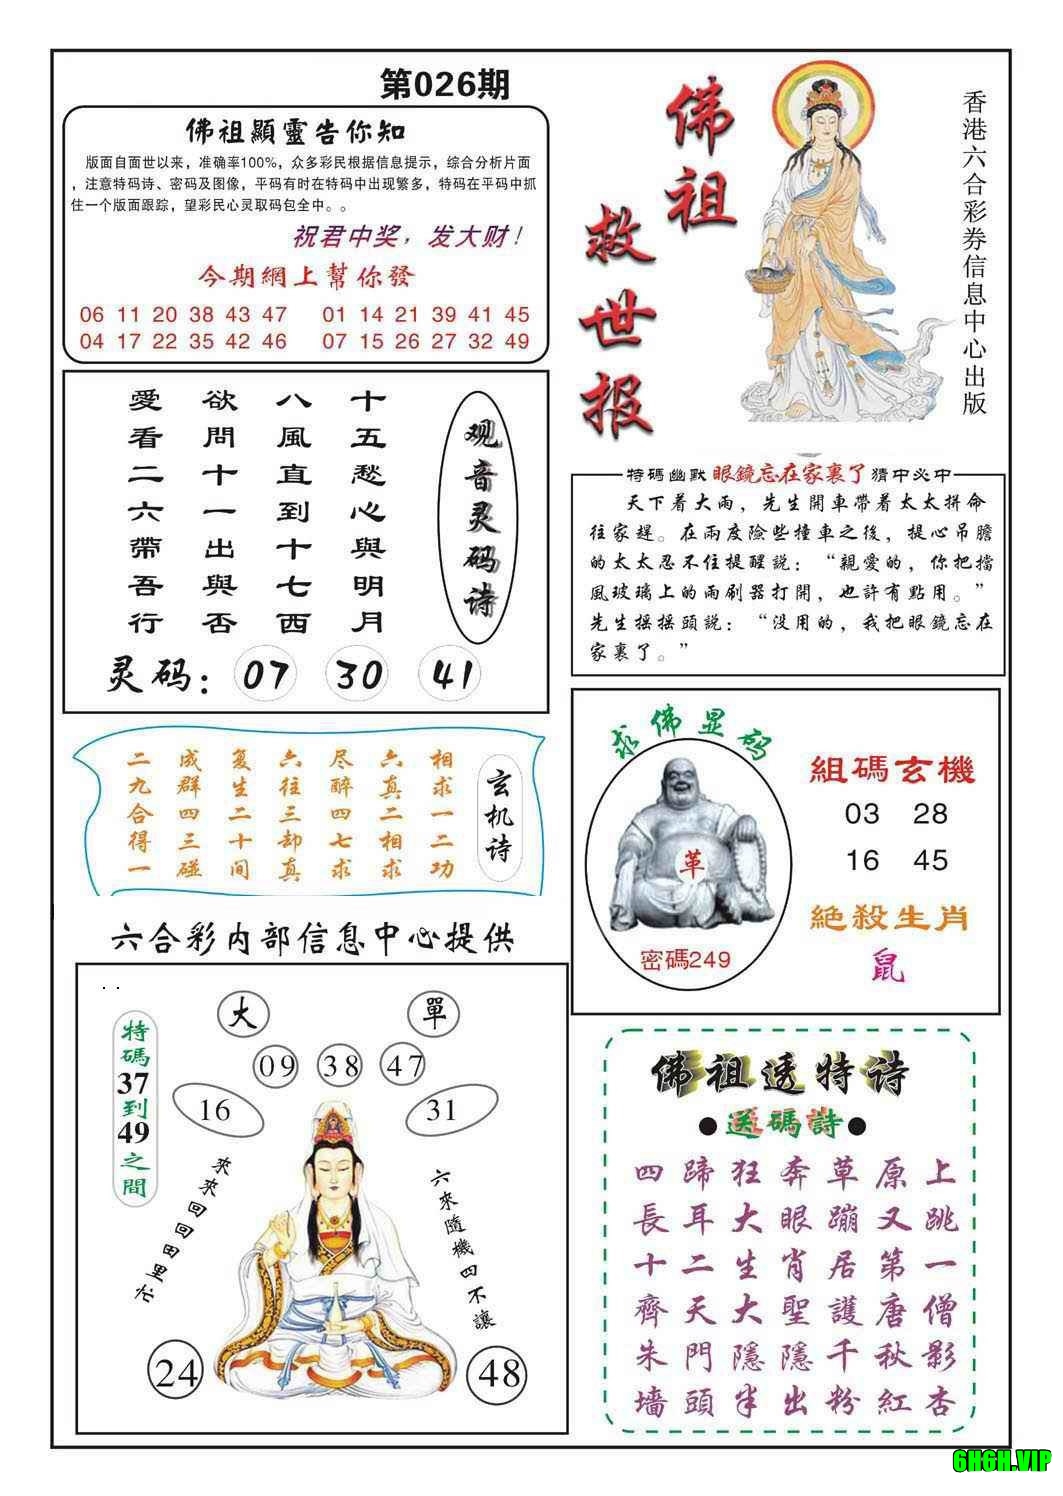 第026期
佛祖顯靈告你知
版面自面世以来，准确率100%，众多彩民根据信息提示，综合分析片面
，注意特码诗、密码及图像，平码有时在特码中出现繁多，特码在平码中抓
住一个版面跟踪，望彩民心灵取码包全中。。
祝君中奖，发大财！
今期網上幫你發
06 11 20 38 43 47 01 14 21 39 41 45
04 17 22 35 42 46 07 15 26 27 32 49
佛祖
救世报
香港六合彩券信息中心出版
观音灵码诗
十五愁心與明月
八風直到十七西
欲問十一出與否
愛看二六帶吾行
灵码：07 30 41
特碼幽默 眼鏡忘在家裏了 猜中必中
天下着大雨，先生開車帶着太太拼命
往家趕。在兩度險些撞車之後，提心吊膽
的太太忍不住提醒説：“親愛的，你把擋
風玻璃上的雨刷器打開，也許有點用。”
先生摇摇頭説：“没用的，我把眼鏡忘在
家裏了。”
玄机诗
相求一二功
六真二相求
尽醉四七求
六往三却真
复生二十间
成群四三碰
二九合得一
求佛显码
革
密碼249
組碼玄機
03 28
16 45
絶殺生肖
鼠
六合彩内部信息中心提供
大
單
09 38 47
16
31
特碼37到49之間
來來回回田里忙
六來隨機四不讓
24
48
佛祖透特诗
●送碼詩●
四蹄狂奔草原上
長耳大眼蹦又跳
十二生肖居第一
齊天大聖護唐僧
朱門隱隱千秋影
墙頭半出粉紅杏
6H6H.VIP